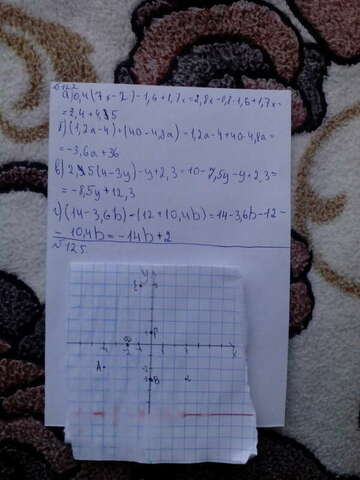 а) 0,4(7x-2)-1,6+1,7x=2,8x-0,8-1,6+1,7x=
б) (1,2a-4)+(40-4,8a)=1,2a-4+40-4,8a=
=-3,6a+36
в) 2,5(4-3y)-y+2,3=10-7,5y-y+2,3=
=-8,5y+12,3
г) (14-3,6b)-(12+10,4b)=14-3,6b-12-
-10,4b=-14b+2
№125.
y
P
x
A
B